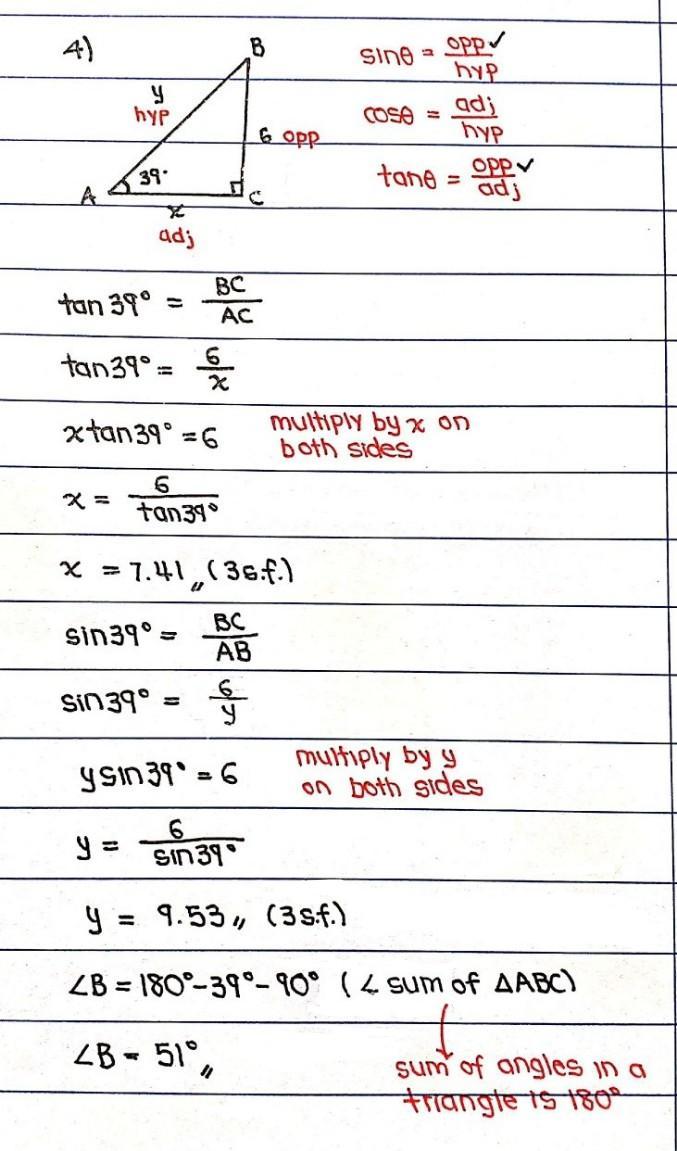 4)
B
y
hyp
6 opp
39°
A
C
x
adj
sinθ = opp✓/hyp
cosθ = adj/hyp
tanθ = opp✓/adj
tan 39° = BC/AC
tan39° = 6/x
x tan 39° = 6 multiply by x on
both sides
x = 6/tan39°
x = 7.41,, (3s.f.)
sin39° = BC/AB
sin39° = 6/y
y sin 39° = 6 multiply by y
on both sides
y = 6/sin39°
y = 9.53,, (3s.f.)
∠B = 180°-39°-90° (∠ sum of ΔABC)
∠B = 51°,,
sum of angles in a
triangle is 180°